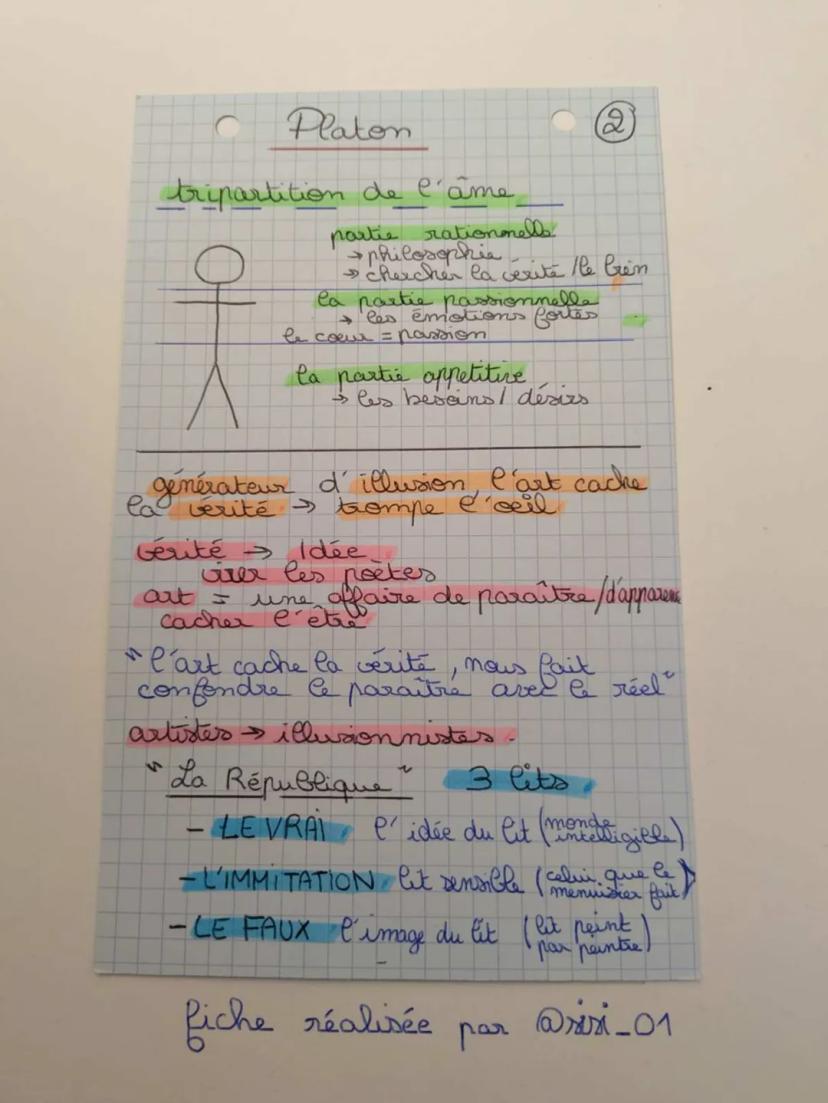 Platon
②
tripartition de l'âme
partie rationnelle
→ philosophie
→ chercher la vérité / le bien
la partie passionnelle
→ les émotions fortes
le coeur = passion
la partie appetitive
→ les besoins / désirs
générateur d'illusion, l'art cache
la vérité → trompe l'oeil
vérité → Idée
virer les poètes
art = une affaire de paraître / d'apparence
cacher l'être
"l'art cache la vérité, nous fait
confondre le paraître avec le réel"
artistes → illusionnistes.
"La République" 3 lits
- LE VRAI l'idée du lit (monde intelligible)
- L'IMMITATION lit sensible (celui que le menuisier fait)
- LE FAUX l'image du lit (lit peint par peintre)
fiche réalisée par @sisi_01